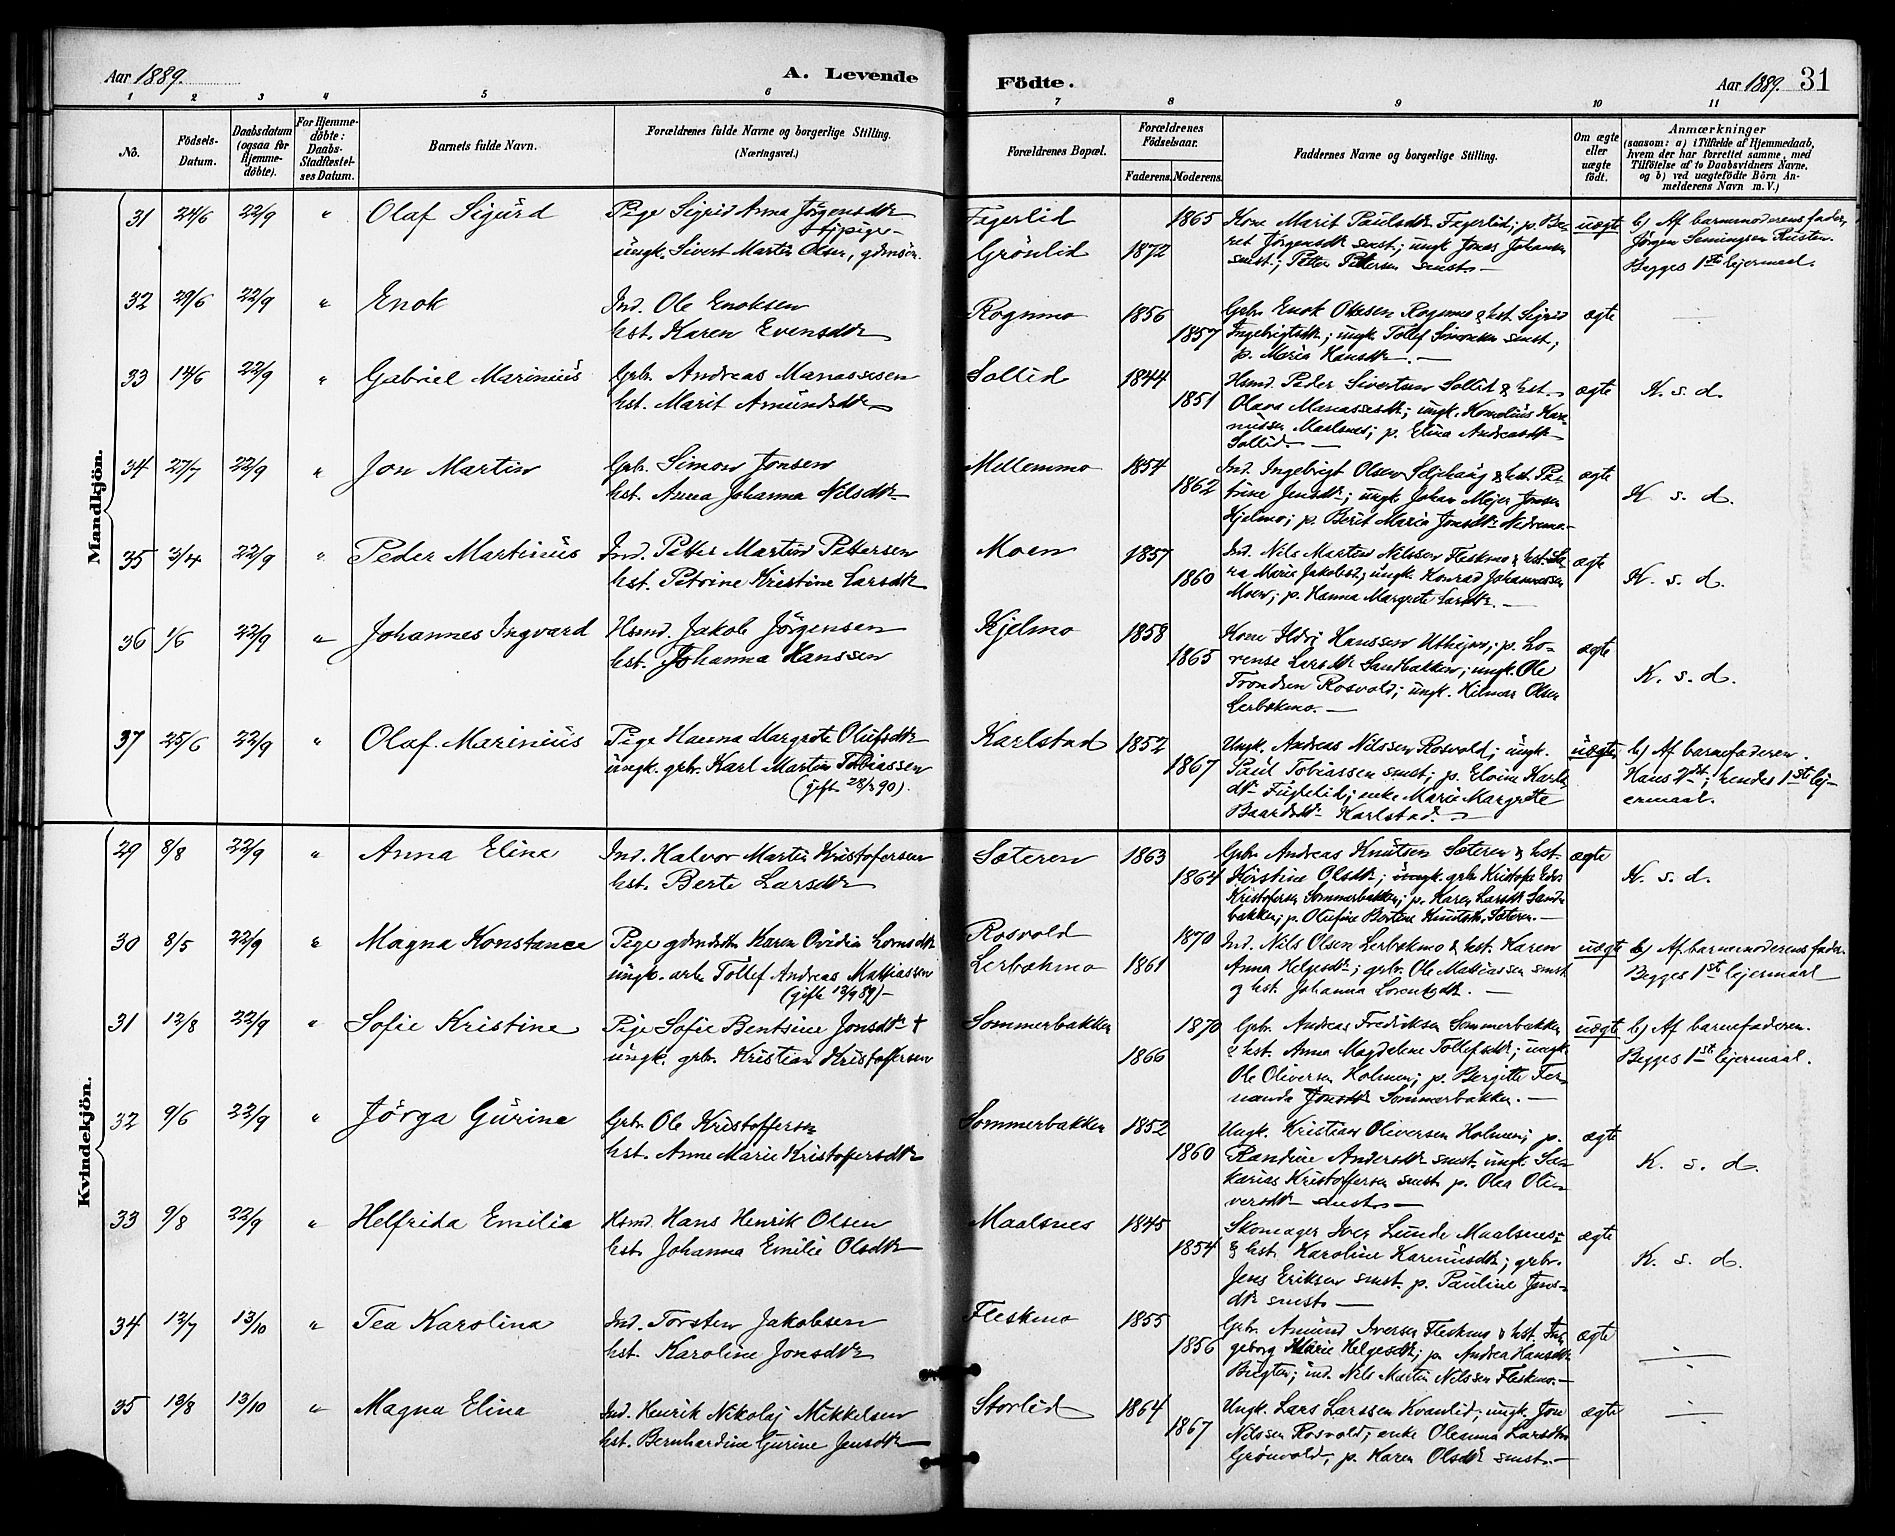 Aar 1889.
A. Levende
Födte.
Aar 1889.
31
1 2 3 4 5 6 7 8 9 10 11
No.
Födsels-
Datum.
Daabsdatum
(ogsaa for
Hjemme-
döbte).
For Hjemme-
döbte:
Daabs-
Stadfæstel-
ses Datum.
Barnets fulde Navn.
Forældrenes fulde Navne og borgerlige Stilling.
(Næringsvei.)
Forældrenes Bopæl.
Forældrenes
Födselsaar.
Faderens. Moderens.
Faddernes Navne og borgerlige Stilling.
Om ægte
eller
uægte
födt.
Anmærkninger
(saasom: a) i Tilfælde af Hjemmedaab,
hvem der har forrettet samme, med
Tilföielse af to Daabsvidners Navne,
og b) ved uægtefödte Börn An-
melderens Navn m. V.)
Mandkjön.
31 24/6 22/9 " Olaf Sigurd
Pige Sigrid Anna Jörgensdtr
ungk. Sivert Martin Olsen, gdmsön.
Fagerlid 1865
Grönlid 1872
Kone Marit Paulsdtr Fagerlid; p. Be-
ret Jörgensdtr smst; ungk Jonas Johansen
smst; Petter Pettersen smst.
uægte
b) Af barnemoderens fader,
Jörgen Semingsen Rusten.
Begges 1ste lejermaal.
32 29/6 22/9 " Enok
Ind. Ole Enoksen
hst. Karen Evensdtr
Rognmo 1856
1857
Gbr. Enok Olsen Rognmo & hst. Sigrid
Ingebrigtsdtr; ungk. Tollef Simonsen smst;
p. Maria Hansdtr.
ægte
33 14/6 22/9 " Gabriel Marinius
Gbr. Andreas Manassesen
hst. Marit Amundsdtr
Sollid 1844
1851
Hsmd. Peder Sivertsen Sollid & hst.
Olava Manassesdtr; ungk. Kornelius Ras-
mussen Maalsnes; p. Elina Andreasdtr
Sollid.
ægte K. s. d.
34 27/7 22/9 " Jon Martin
Gbr. Simon Jonsen
hst. Anna Johanna Nilsdtr
Mellemmo 1854
1862
Ind. Ingebrigt Olsen Seljehaug & hst. Pe-
trine Jensdtr; ungk. Johan Mejer Jonsen
Kjelmo; p. Berit Maria Jonsdtr Nedremo.
ægte K. s. d.
35 3/4 22/9 " Peder Martinus
Ind. Petter Martin Pettersen
hst. Petrine Kristine Larsdtr
Moen 1857
1860
Ind. Nils Martin Nilssen Fleskmo & hst. Sa-
ra Marie Jakobsd; ungk. Konrad Johannessen
Moen; p. Hanna Margrete Larsdtr.
ægte K. s. d.
36 1/6 22/9 " Johannes Ingvard
Hsmd. Jakob Jörgensen
hst. Johanna Hanssen
Kjelmo 1858
1865
Kone Hanssen Uthejm; p. Lo-
rense Larsdtr Sandbakken; ungk. Ole
Trondsen Rosvold; ungk. Hilmar Olsen
Lerbækmo.
ægte K. s. d.
37 25/6 22/9 " Olaf Marinius
Pige Hanna Margrete Olufsdtr
ungk. gbr. Karl Martin Tobiassen
(gift 28/2 90).
Karlstad 1852
1867
Ungk. Andreas Nilssen Rosvold; ungk.
Paul Tobiassen smst; p. Elvine Karls-
dtr Fuglelid; enke Marie Margrete
Baardsdtr Karlstad.
uægte
b) Af barnefaderen.
Hans 2det; hendes 1ste lej-
ermaal.
Kvindekjön.
29 8/8 22/9 " Anna Elina
Ind. Halvor Martin Kristofersen
hst. Berte Larsdtr
Sæteren 1863
1864
Gbr. Andreas Knutsen Sæteren & hst.
Kirstine Olsdtr; ungk. gbr Kristofer
Kristofersen Sommerbakken; p. Karen Larsdtr Sand-
bakken; p. Olufine Bertine Knutsdtr Sæteren.
ægte K. s. d.
30 8/5 22/9 " Magna Konstance
Pige gdmdtr Karen Ovidia Lornsdtr
ungk. arb. Tollef Andreas Mattiassen
(gift 12/9 89)
Rosvold 1870
Lerbækmo 1861
Ind. Nils Olsen Lerbækmo & hst. Karen
Anna Helgesdtr; gbr. Ole Mattiassen smst
og hst. Johanna Lorentsdtr.
uægte
b) Af barnemoderens fader.
Begges 1st lejermaal
31 12/8 22/9 " Sofie Kristine
Pige Sofie Bentsine Jonsdtr +
ungk. gbr. Kristian Kristoffersen
Sommerbakken 1870
1866
Gbr. Andreas Fredriksen Sommerbakken
& hst. Anna Magdalene Tollefsdtr; ungk.
Ole Oliversen Holmen; p. Bergitte Fer-
nanda Jonsdtr Sommerbakken.
uægte
b) Af barnefaderen.
Begges 1st lejermaal.
32 9/6 22/9 " Jörga Gurine
Gbr. Ole Kristoffersen
hst. Anne Marie Kristofersdtr
Sommerbakken 1852
1860
Ungk. Kristian Oliversen Holmen; p.
Randine Andersdtr smst. ungk. Sa-
karias Kristoffersen smst. p. Olea Oli-
versdtr smst.
ægte K. s. d.
33 9/8 22/9 " Helfrida Emilie
Hsmd. Hans Henrik Olsen
hst. Johanna Emilie Olsdtr
Maalsnes 1845
1854
Skomager Iver Lunde Maalsnes
& hst. Karoline Hareiusdtr; gbr.
Jens Eriksen smst. p. Pauline Jens-
dtr smst.
ægte K. s. d.
34 12/7 13/10 " Tea Karolina
Ind. Torsten Jakobsen
hst. Karoline Jonsdtr
Fleskmo 1855
1856
Gbr. Amund Iversen Fleskmo & hst. In-
geborg Marie Helgesdtr; p. Andrea Hansdtr
ind. Nils Martin Nilssen Fleskmo.
ægte
35 13/8 13/10 " Magna Elina
Ind. Henrik Nikolaj Mikkelsen
hst. Bernhardine Gurine Jensdtr
Storlid 1864
1867
Ungk. Lars Larssen Kvanlid; ungk. Jon
Nilssen Rosvold; enke Oleanna Larsdtr
Grönvold; p. Karen Olsdtr smst.
ægte